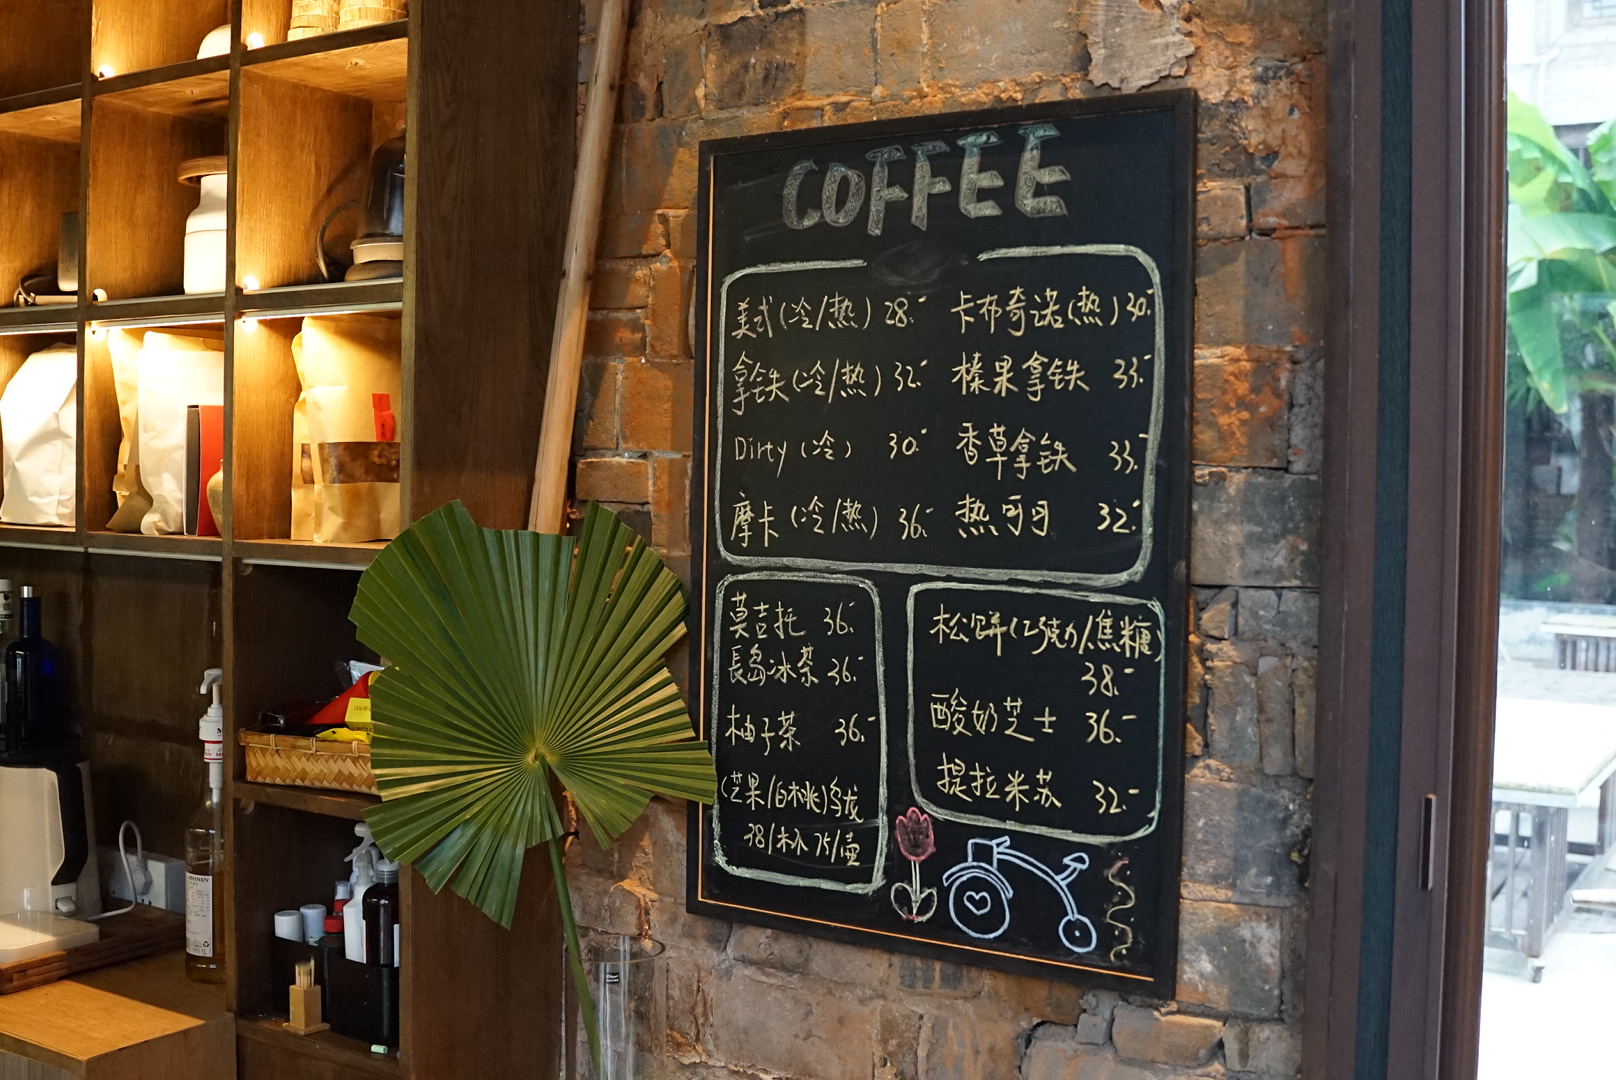 COFFEE
美式(冷/热) 28.- 卡布奇诺(热) 30.-
拿铁(冷/热) 32.- 榛果拿铁 33.-
Dirty (冷) 30.- 香草拿铁 33.-
摩卡 (冷/热) 36.- 热可可 32.-
莫吉托 36.-
長島冰茶 36.-
柚子茶 36.-
(芝果/白桃)乌龙
38/杯 75/壶
松饼(巧克力/焦糖)
38.-
酸奶芝士 36.-
提拉米苏 32.-